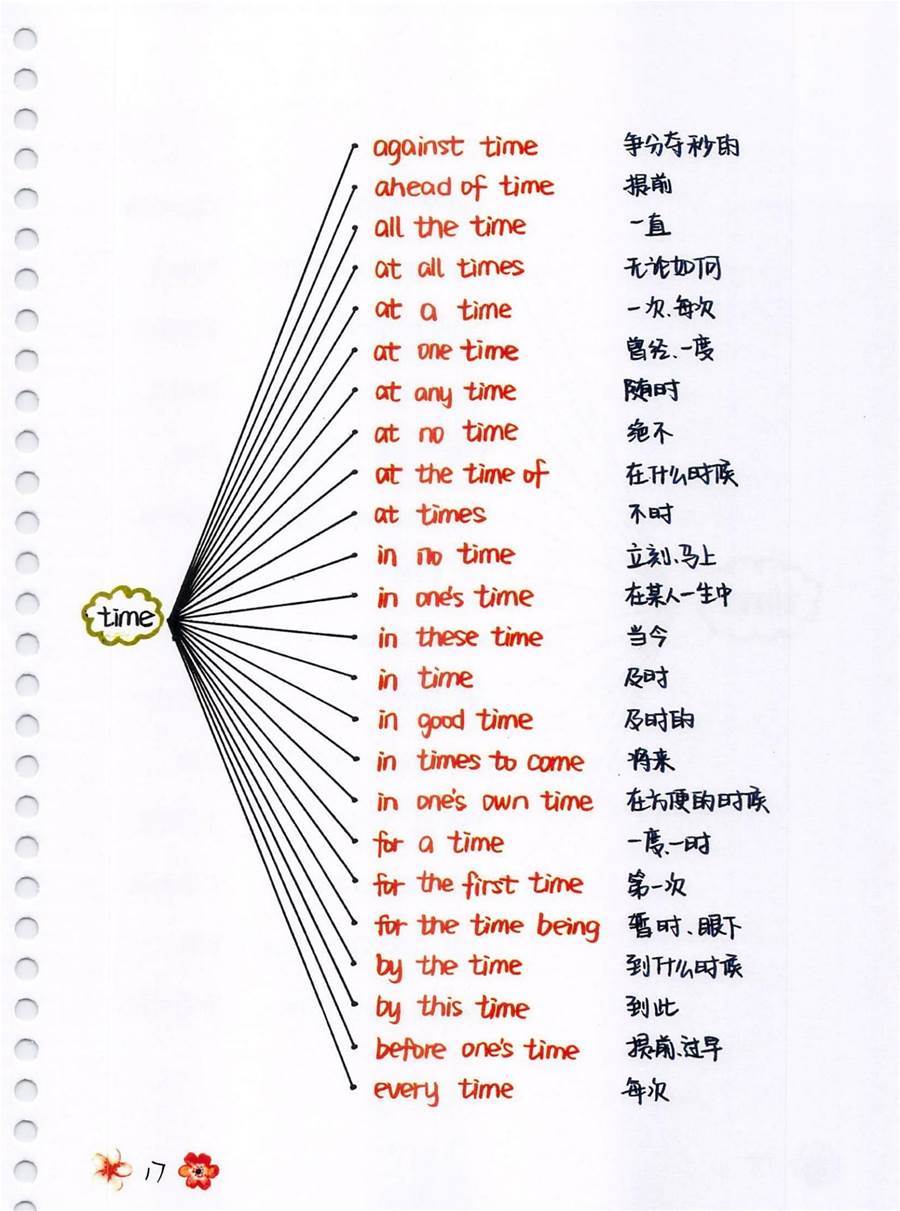 against time 争分夺秒的
ahead of time 提前
all the time 一直
at all times 无论如何
at a time 一次、每次
at one time 曾经、一度
at any time 随时
at no time 绝不
at the time of 在什么时候
at times 不时
in no time 立刻、马上
in one's time 在某人一生中
time
in these time 当今
in time 及时
in good time 及时的
in times to come 将来
in one's own time 在方便的时候
for a time 一度、一时
for the first time 第一次
for the time being 暂时、眼下
by the time 到什么时候
by this time 到此
before one's time 提前、过早
every time 每次
17